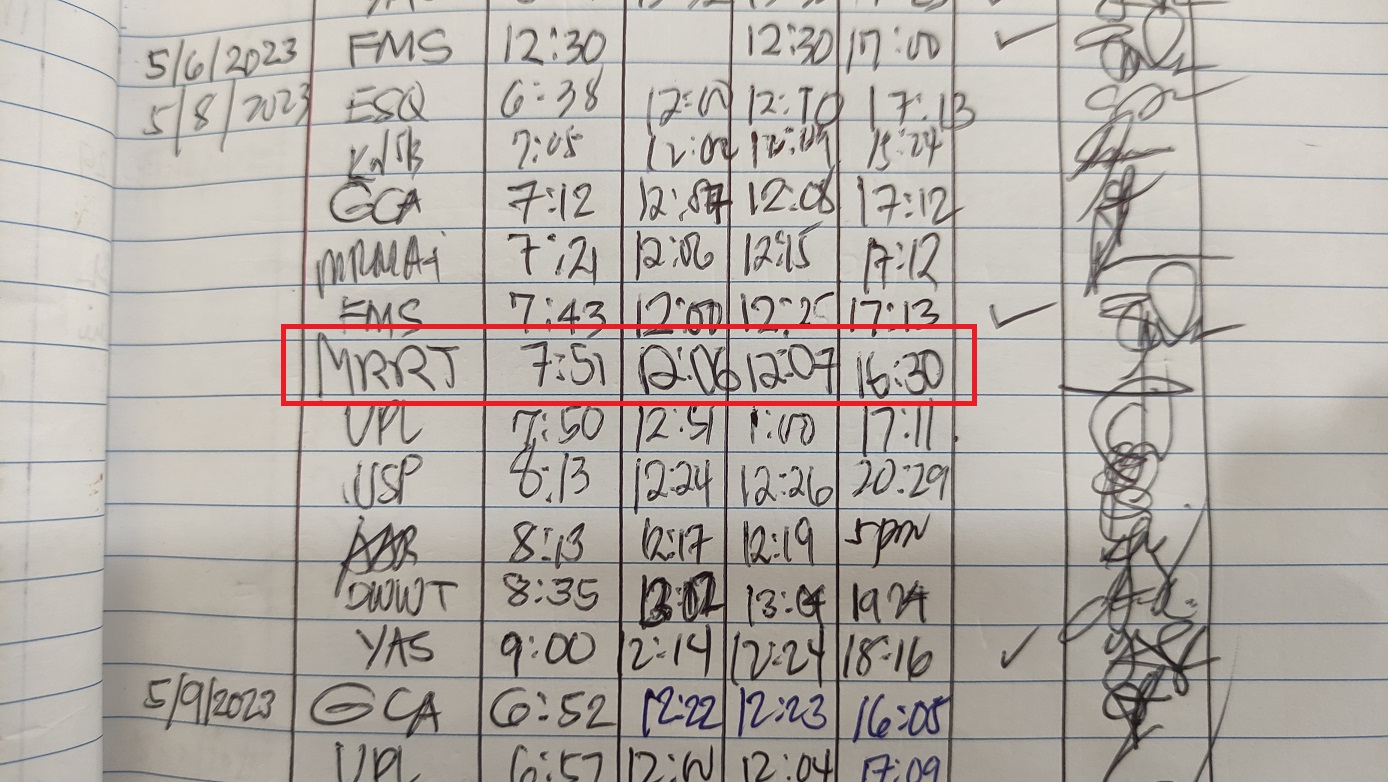 5/6/2023 FMS 12:30 12:30 17:00 ✓
5/8/2023 ESQ 6:38 12:00 12:10 17:13
7:05 12:09 15:24
GCA 7:12 12:08 17:12
MRMAj 7:21 12:06 12:15 17:12
FMS 7:43 12:00 12:25 17:13 ✓
MRRJ 7:51 12:06 12:07 16:30
VPL 7:50 12:51 1:00 17:11
JSP 8:13 12:24 12:26 20:29
AAR 8:13 12:17 12:19 5pm
DWWT 8:35 13:02 13:04 1924
YAS 9:00 12:14 12:24 18:16 ✓
5/9/2023 GCA 6:52 12:22 12:23 16:05
VPL 6:57 12:04 17:09